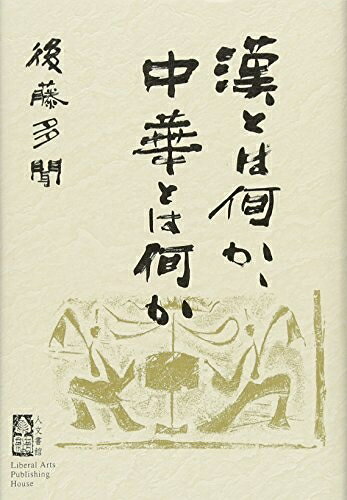 漢とは何か、
中華とは何か
後藤多聞
人文書館
Liberal Arts
Publishing
House